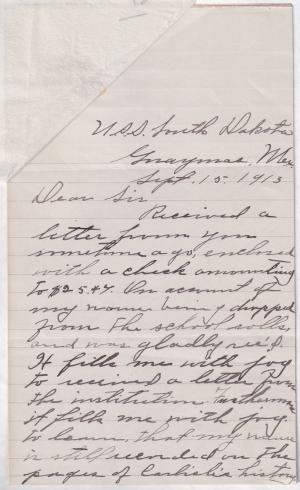 U.S.S. South Dakota
Guaymas, Mex
Sept. 15, 1913
Dear Sir
Received a
letter from you
sometime ago, enclosed
with a check amounting
to $25.47. On account of
my name being dropped
from the school rolls,
and was gladly rec'd.
It fills me with joy
to received a letter from
the institution
it fills me with joy
to learn, that my name
is still recorded on the
pages of Carlisle history